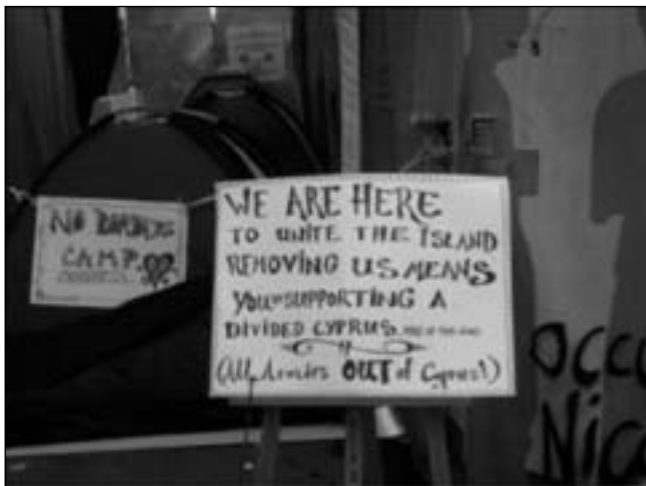 NO BORDERS
CAMP
WE ARE HERE
TO UNITE THE ISLAND
REMOVING US MEANS
YOU SUPPORTING A
DIVIDED CYPRUS
(All Armies OUT of Cyprus!)
OCCU
NICO